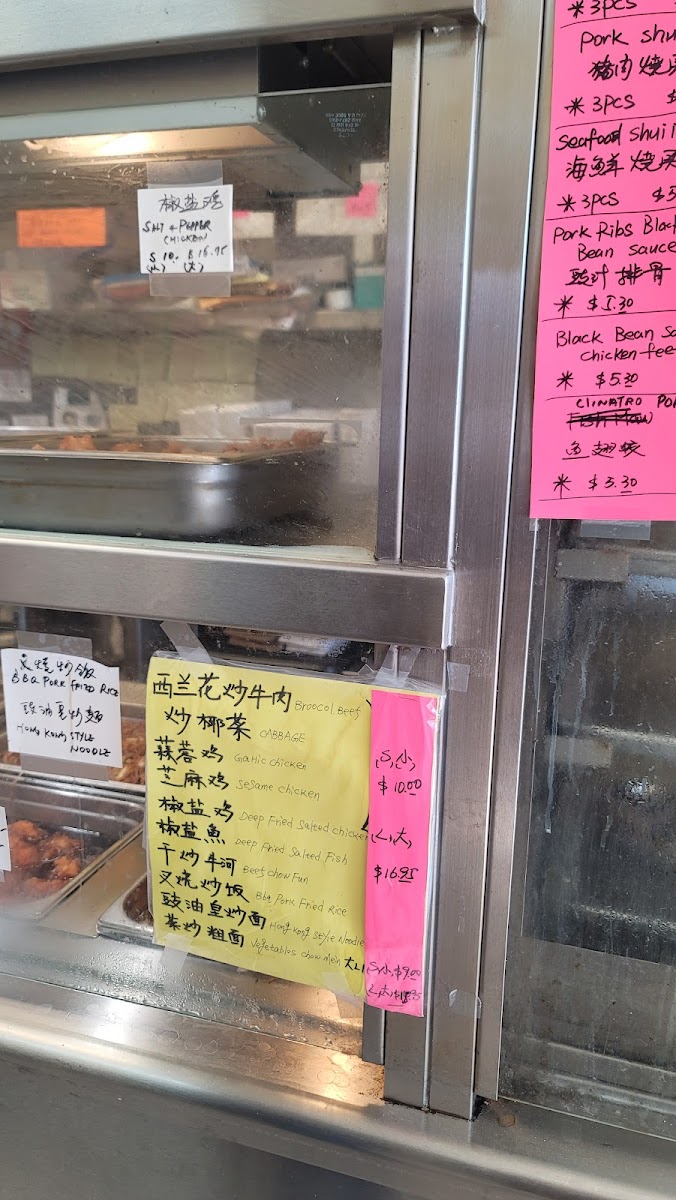 椒盐鸡
SALT + PEPPER
CHICKEN
S 10. $ 16.95
(小) (大)
*3PCS
Pork shu
猪肉烧
*3PCS $
Seafood Shui
海鮮烧
*3PCS $5
Pork Ribs Black
Bean sauce
豉汁排骨
* $5.30
Black Bean Sa
chicken fee
* $5.30
CLINATRO PO
鱼翅餃
* $5.30
叉烧炒飯
BBQ PORK FRIED RICE
豉油皇炒麵
HONG KONG STYLE
NOODLE
西兰花炒牛肉 Broocol.Beef
炒椰菜 CABBAGE
蒜蓉鸡 Garlic chicken
芝麻鸡 Sesame chicken
椒盐鸡 Deep Fried Salted chicken
椒盐魚 Deep Fried Salted Fish
干炒牛河 Beef chow Fun
叉烧炒饭 Bbq Pork Fried Rice
豉油皇炒面 Hong Kong Style Noodle
菜炒粗面 Vegetables chow mein
(S,小)
$10.00
(L,大)
$16.95
S,小,$9.00